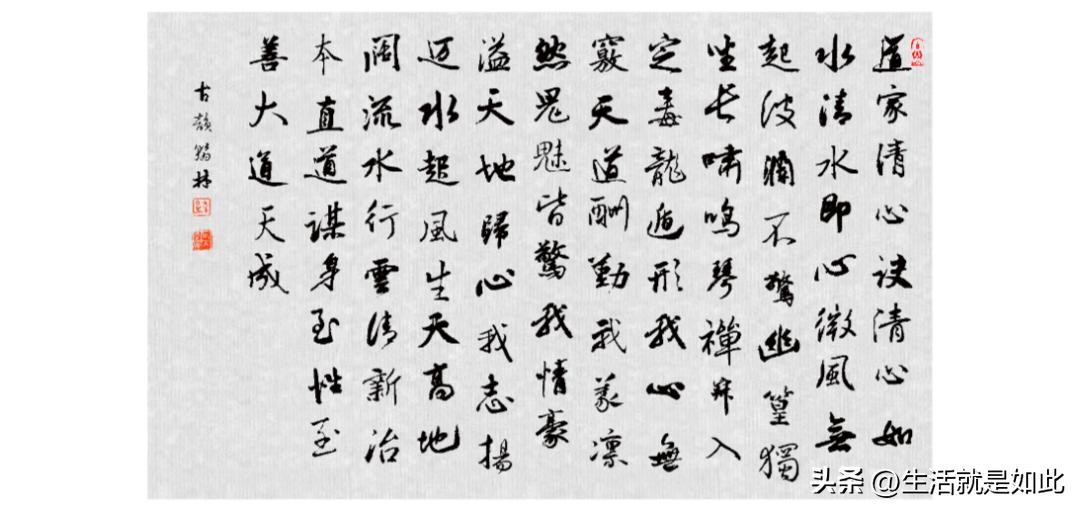 道家清心诀清心如
水清水即心微風無
起波瀾不驚幽篁獨
坐长嘯鳴琴禪寂入
定毒龍遁形我心無
竅天道酬勤我義凛
然鬼魅皆驚我情豪
溢天地歸心我志揚
迈水起風生天高地
闊流水行雲清新治
本直道謀身至性至
善大道天成
古韻翰林
头条 @生活就是如此